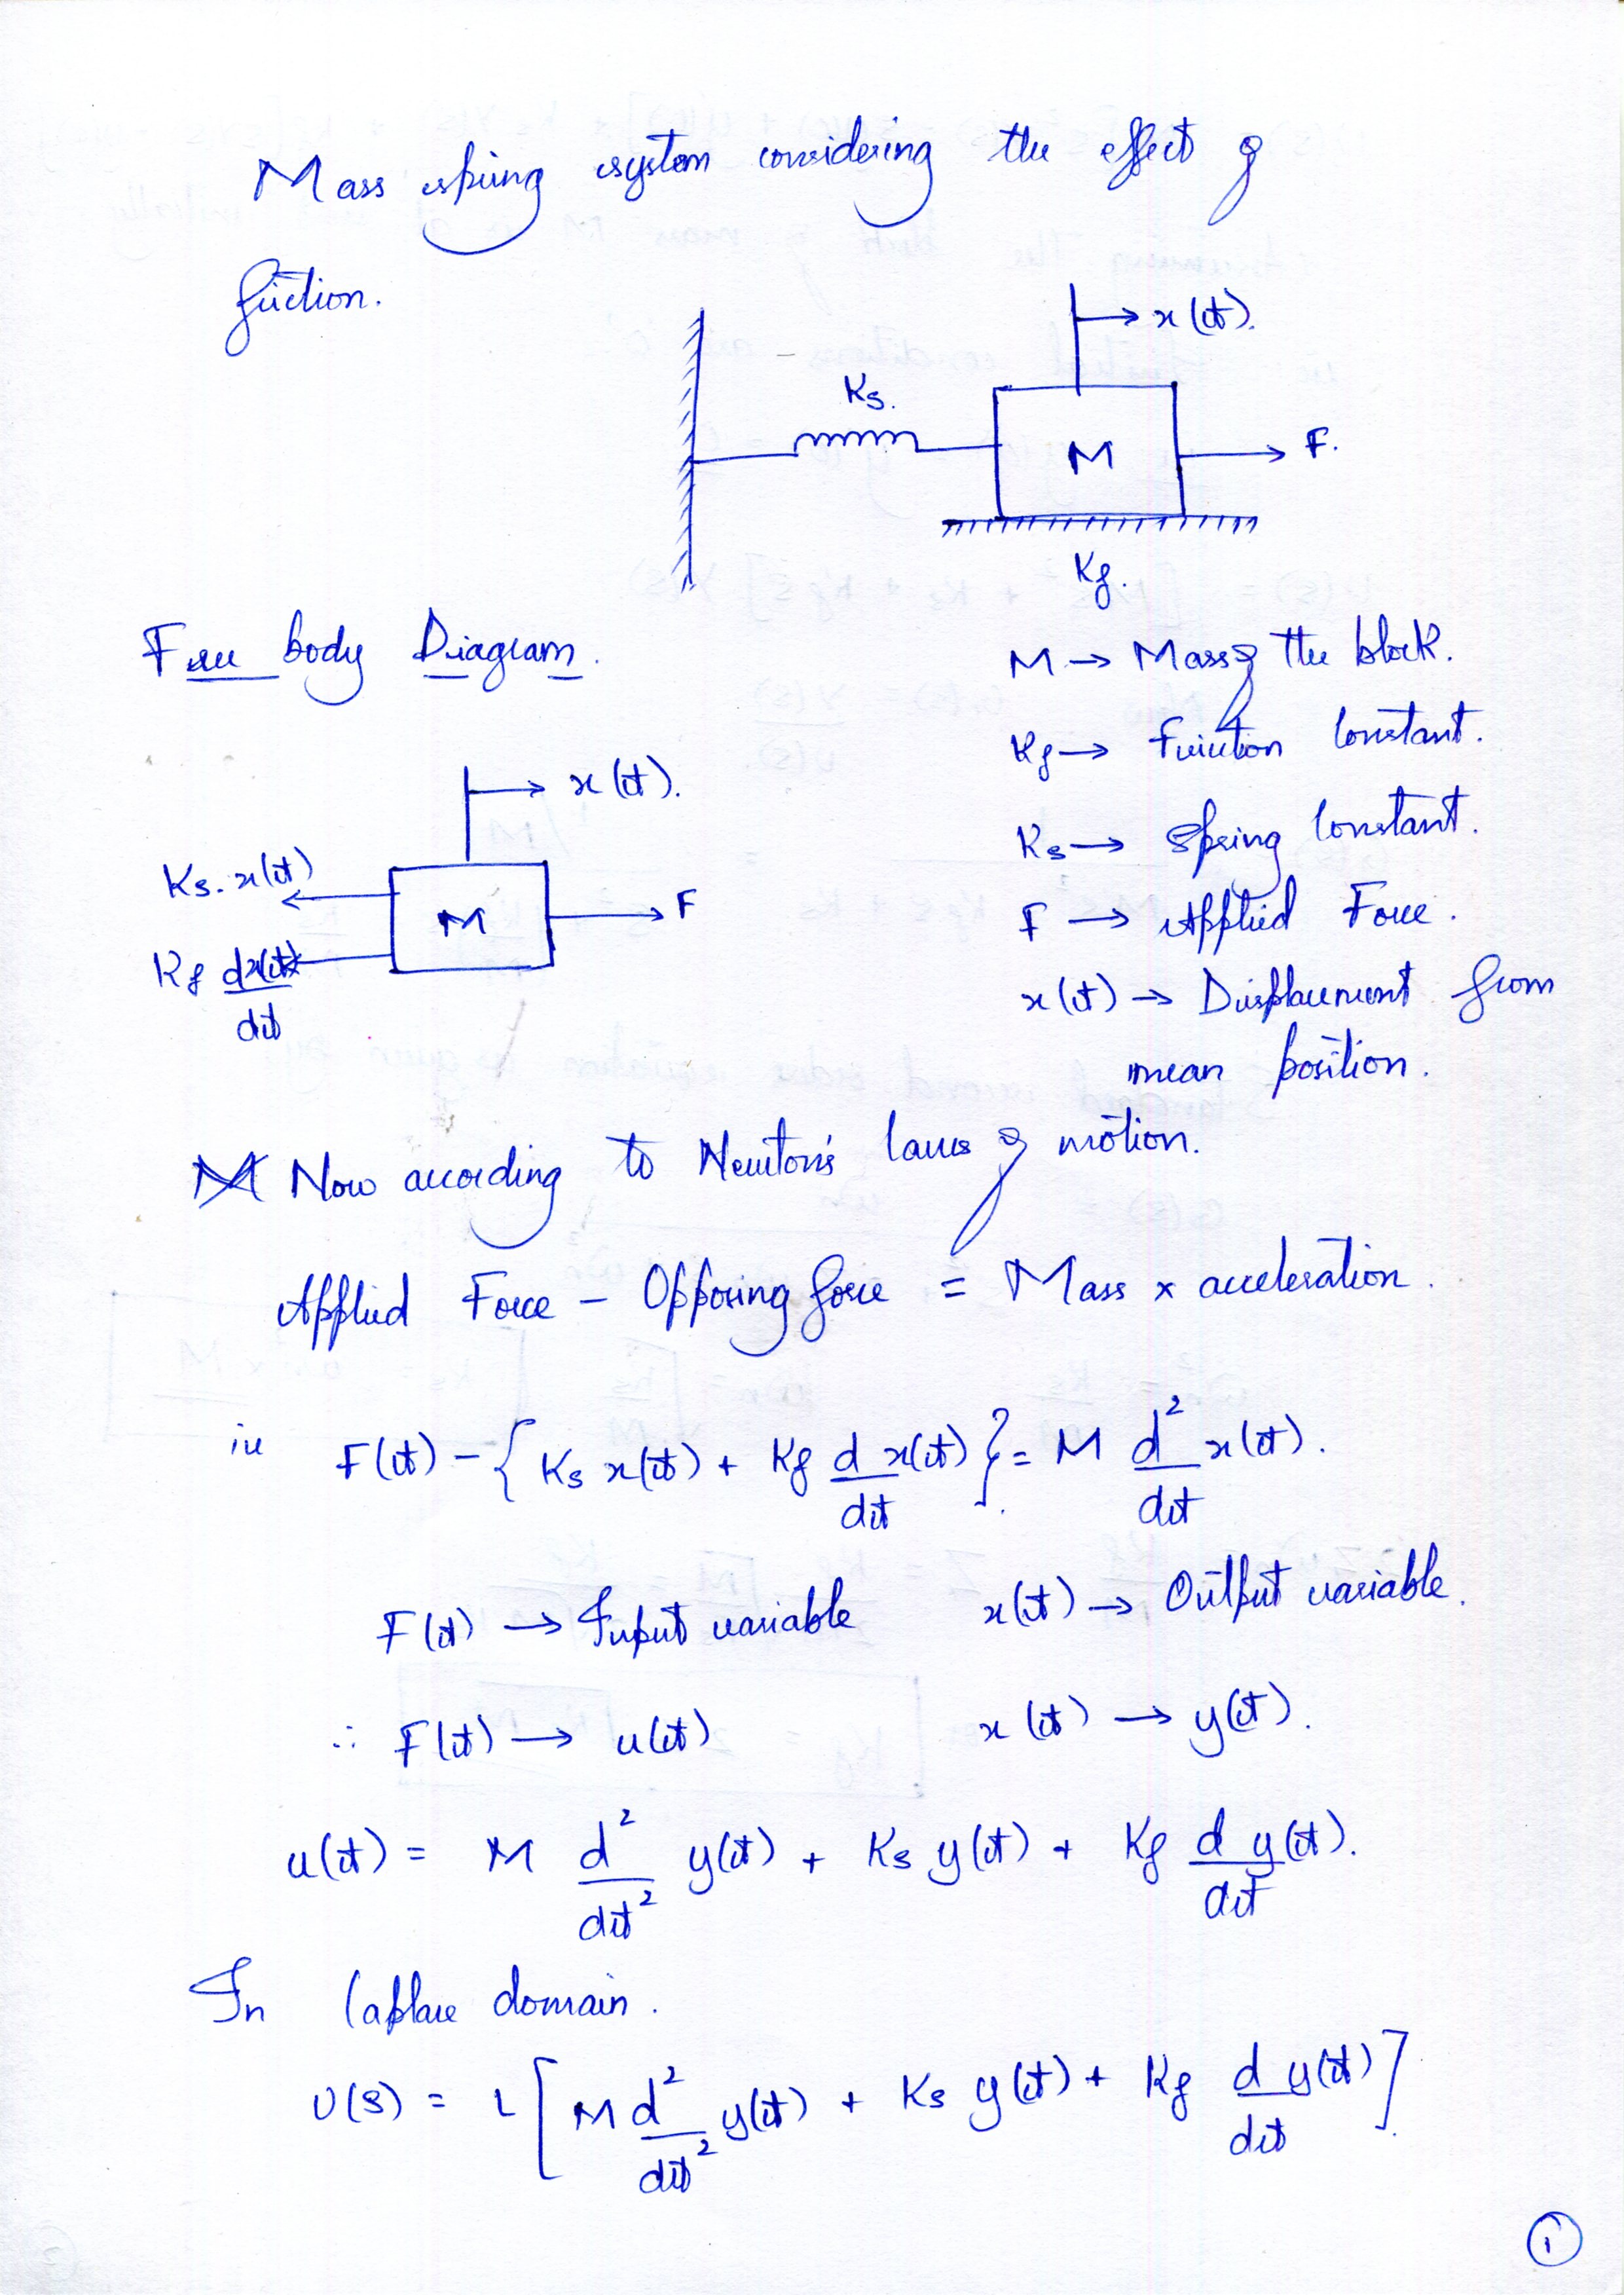 Mass spring system considering the effect of
friction.
x(t).
Ks.
M
F.
Kf.
Free body Diagram.
M → Mass of the block.
Kf → Friction Constant.
x(t).
Ks → Spring Constant.
Ks.x(t)
M
F
F → Applied Force.
Kf dx(t)/dt
x(t) → Displacement from
mean position.
Now according to Newton's laws of motion.
Applied Force - Opposing force = Mass x acceleration.
ie F(t) - { Ks x(t) + Kf d/dt x(t) }. = M d²/dt x(t).
F(t) → Input variable x(t) → Output variable.
∴ F(t) → u(t) x(t) → y(t).
u(t) = M d²/dt² y(t) + Ks y(t) + Kf d/dt y(t).
In Laplace domain.
U(s) = L [ M d²/dt² y(t) + Ks y(t) + Kf d/dt y(t) ].
1